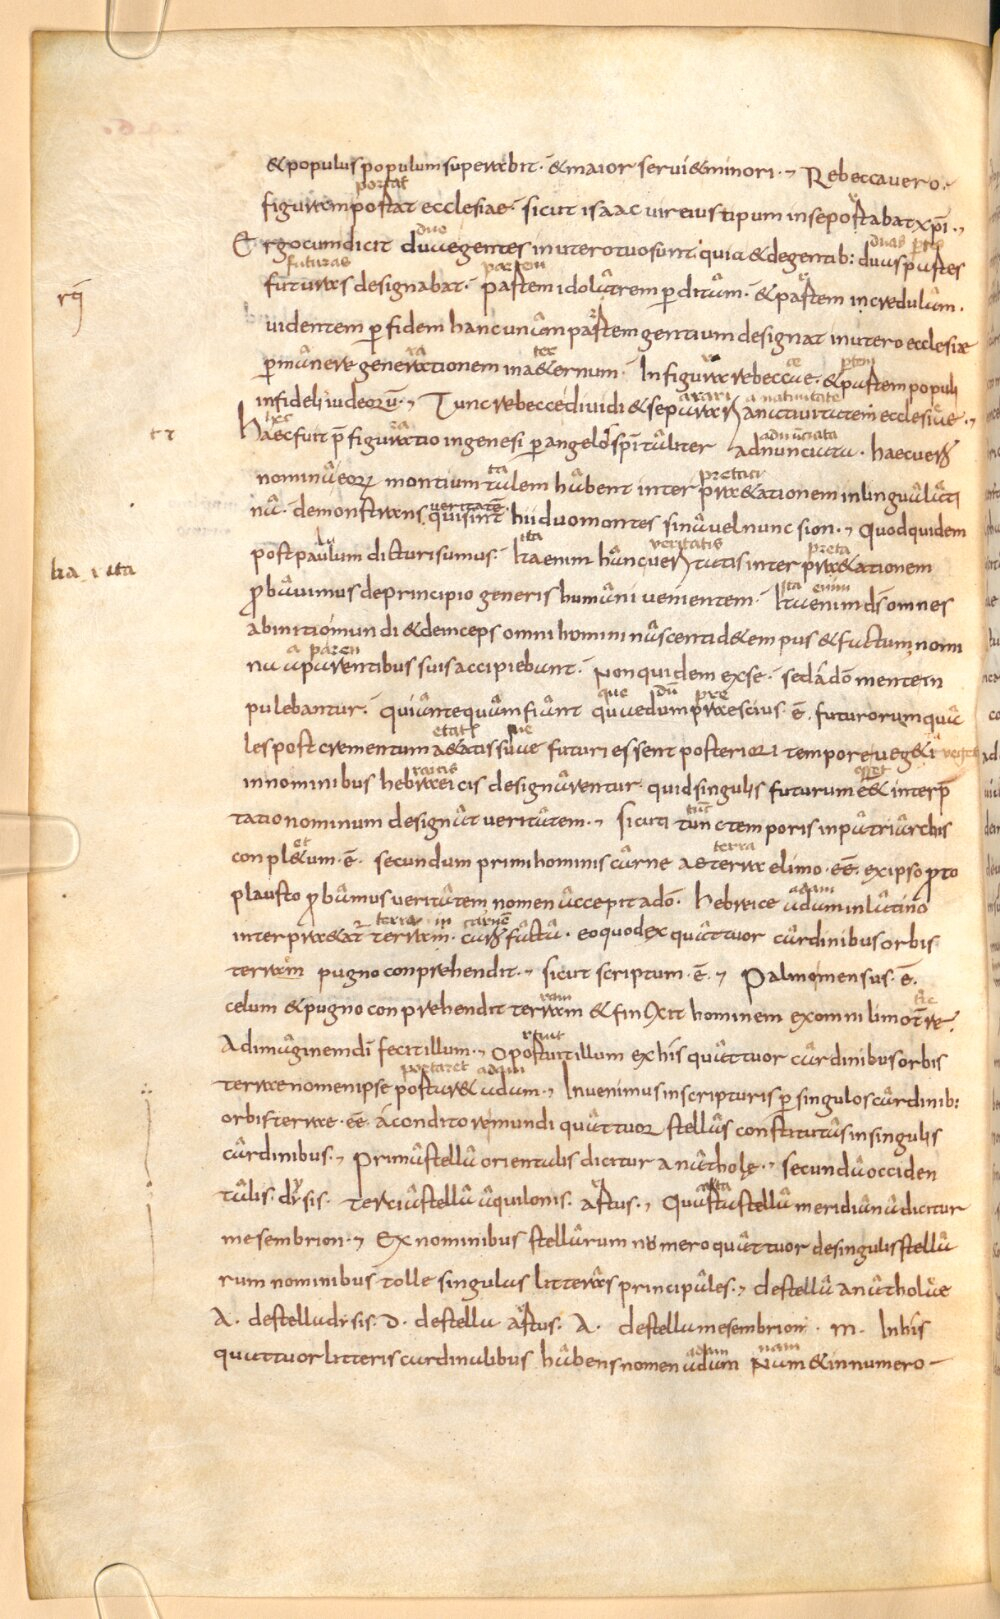 & populus populum superabit · & maior servi& minori · Rebecca vero ·
portat
figuram portat ecclesiae · sicut isaac vir eius tipum in se portabat xp̄i ·
duo duas
Ergo cum dicit duae gentes in utero tuo sunt · quia & de gentib: duas partes
futuras partem
futuras designabat · partem idolatrem perditam · & partem incredulam ·
rq̄
videntem per fidem hanc unam partem gentium designat in utero ecclesiæ
ra ter ra ce ptem
permanere generationem in aeternum · In figura rebeccae · & partem populi
arari a nativitate
infideli iudeorū · Tunc rebecce dividi & separari a nativitatem ecclesiae ·
hec ra adnunciata
Haec fuit p̄figuratio in genesi per angelos spiritaliter adnunciata · haec vero
ta pretati
nomina eorum montium talem habent interpraetationem in lingua lati
veritatē
na · demonstrans qui sint hii duo montes sina vel nunc sion · Quod quidem
ita veritatis preta
post paulum dicturi sumus · Ita enim hanc veritatis interpraetationem
Ita · ita
ita enim
probavimus de principio generis humani venientem · Ita enim ds̄ omnes
ab initio mundi & deinceps omni homini nascenti d& tempus & factum nomi
a paren
na a parentibus suis accipiebant · Non quidem ex se · sed a dō mente in
que dū pre
pulebantur · qui antequam fiant quae dum praescius · ē · futurorum qua
etatis sue
les post crementum aetatis suae futuri essent posteriori tempore veget
raicis esset
in nominibus hebraeicis designarentur quid singulis futurum ess& interp̄
tunc
tatio nominum designat veritatem · Sicuti tunc temporis in patriarchis
et terra
conpletum · ē · secundum primi hominis carne ae terra e limo · eē · ex ipso proto
adam
plausto probamus veritatem nomen accepit a dō · hebreice adam in latino
terra in carnē
interpraetat terram · caro facta · eo quod ex quattuor cardinibus orbis
terram pugno conprehendit · sicut scriptum · ē · Palmo mensus · ē ·
ram
celum & pugno conprehendit terram & finxit hominem ex omni limo terre ·
rtuit
Ad imaginem dī fecit illum · Oportuit illum ex his quattuor cardinibus orbis
portaret adam
terrae nomen ipse portar& adam · Invenimus in scripturis per singulos cardinib:
orbis terrae · eē a conditore mundi quattuor stellas constitutas in singulis
cardinibus · Prima stella orientalis dicitur anathole · secunda occiden
talis · dysis · tercia stella aquilonis · artus · Quarta stella meridiana dicitur
mesembrion · Ex nominibus stellarum numero quattuor de singulis stella
rum nominibus tolle singulas litteras principales · de stella anatholae
A · de stella dysis · D · de stella artus · A · de stella mesembrion · m · In his
adam nam
quattuor litteris cardinalibus habens nomen adam Nam & in numero